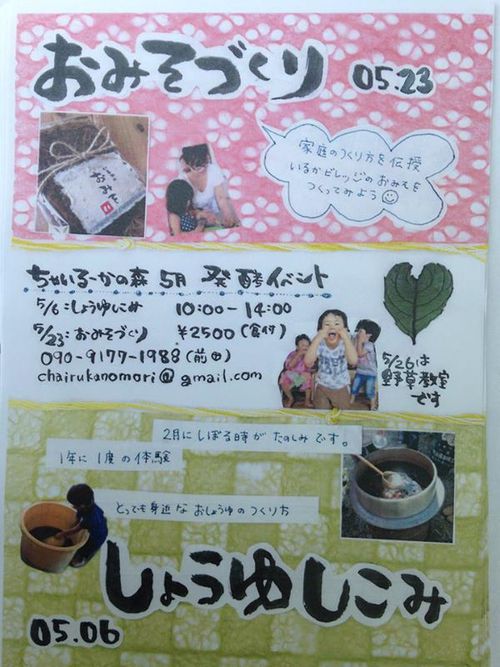 おみそづくり
05.23
家庭のつくり方を伝授
いるかビレッジのおみそを
つくってみよう
おみそ
ちゃいるーかの森 5月 発酵イベント
5/6:しょうゆしこみ 10:00-14:00
5/23:おみそづくり ¥2500(食付)
090-9177-1988(前田)
chairukanomori@gmail.com
5/26は
野草教室
です
2月にしぼる時がたのしみです。
1年に1度の体験
とっても身近なおしょうゆのつくり方
しょうゆしこみ
05.06